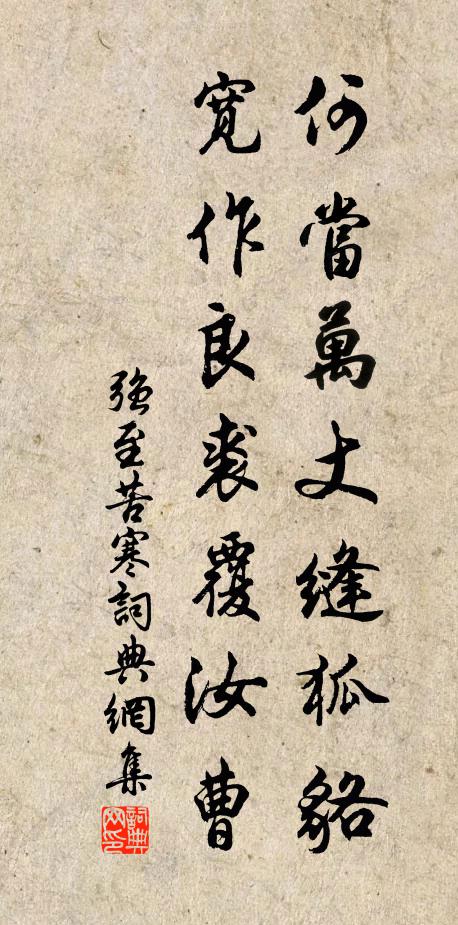 何當萬丈縫狐貉
寬作良裘覆汝曹
強至苦寒詞典網集
詞典網印